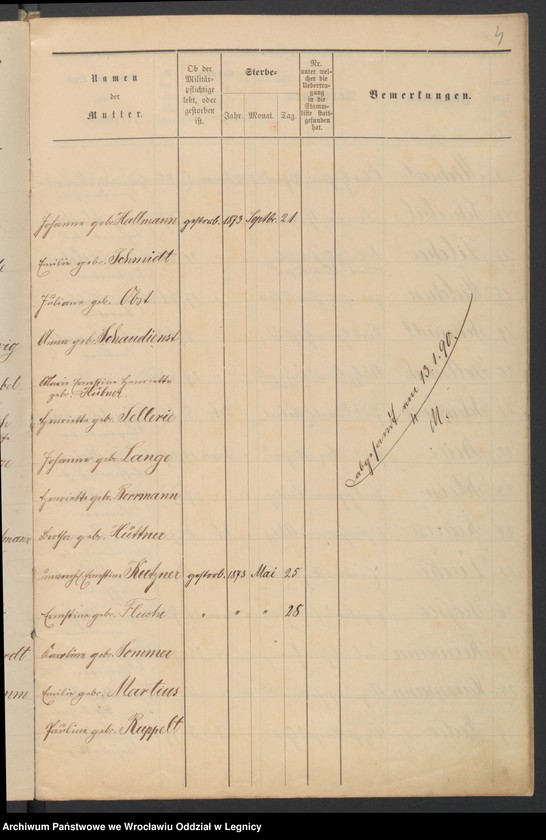 Namen
der
Mutter.
Ob der
Militär-
pflichtige
lebt, oder
gestorben
ist.
Sterbe-
Jahr. Monat. Tag.
Nr.
unter wel-
cher die
Uebertra-
gung
in die
Stamm-
liste statt-
gefunden
hat.
Bemerkungen.
Johanna geb. Hallmann gestorb. 1873 Septbr. 21.
Emilie gebr. Schmidt
Juliane geb. Obst
Anna geb. Schaudienst
Marie Ernestine Henriette
geb. Hübner.
Henriette geb. Sellerie
Johanne geb. Lange
Henriette geb. Berrmann
Bertha geb. Hüttner
unverehl. Ernestine Kutzner gestorb. 1873 Mai 25
Ernestine geb. " " " 28
Karoline geb. Sommer
Emilie geb. Martius
Pauline geb. Ruppelt
abgesandt am 13.1.90.
M.
Archiwum Państwowe we Wrocławiu Oddział w Legnicy